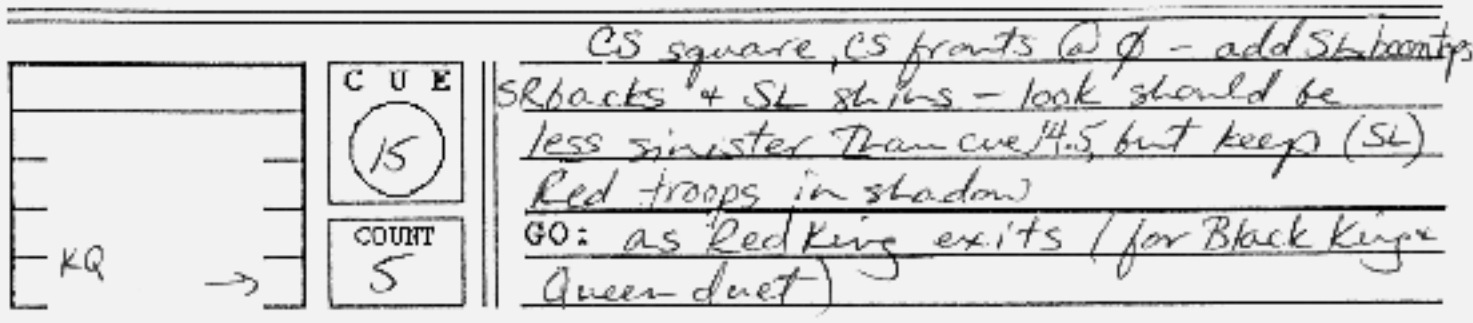 CS square, CS fronts @ ø - add SL boomtops
CUE
SR backs + SL shins - look should be
15
less sinister Than cue 14.5, but keep (SL)
Red troops in shadow
COUNT
GO: as Red King exits (for Black King +
KQ →
5
Queen duet)